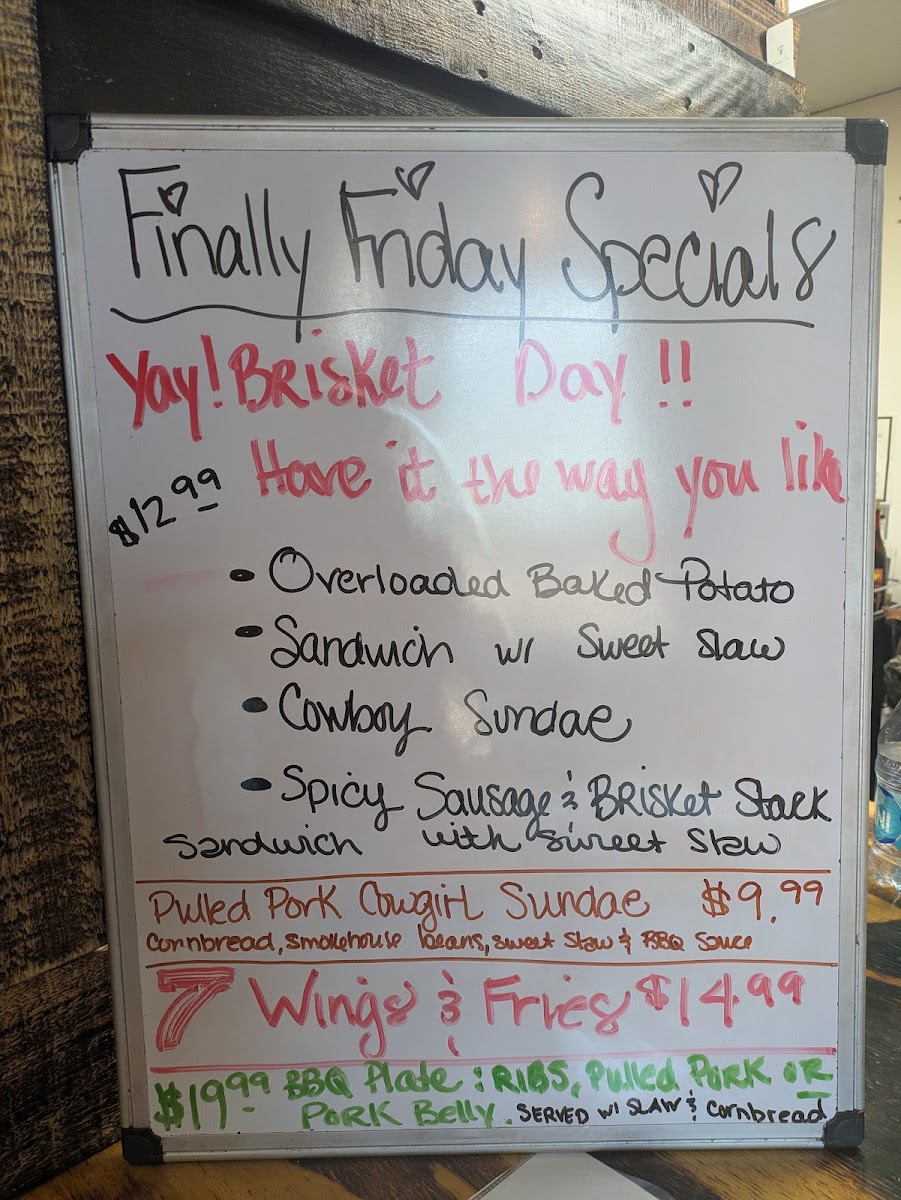 Finally Friday Specials
Yay! Brisket Day !!
Have it the way you like
$12.99
• Overloaded Baked Potato
• Sandwich w/ Sweet Slaw
• Cowboy Sundae
• Spicy Sausage & Brisket Stack
Sandwich with Sweet Slaw
Pulled Pork Cowgirl Sundae $9.99
Cornbread, smokehouse beans, sweet slaw & BBQ Sauce
7 Wings & Fries $14.99
$19.99 BBQ Plate: RIBS, Pulled Pork OR
Pork Belly. SERVED w/ SLAW & Cornbread